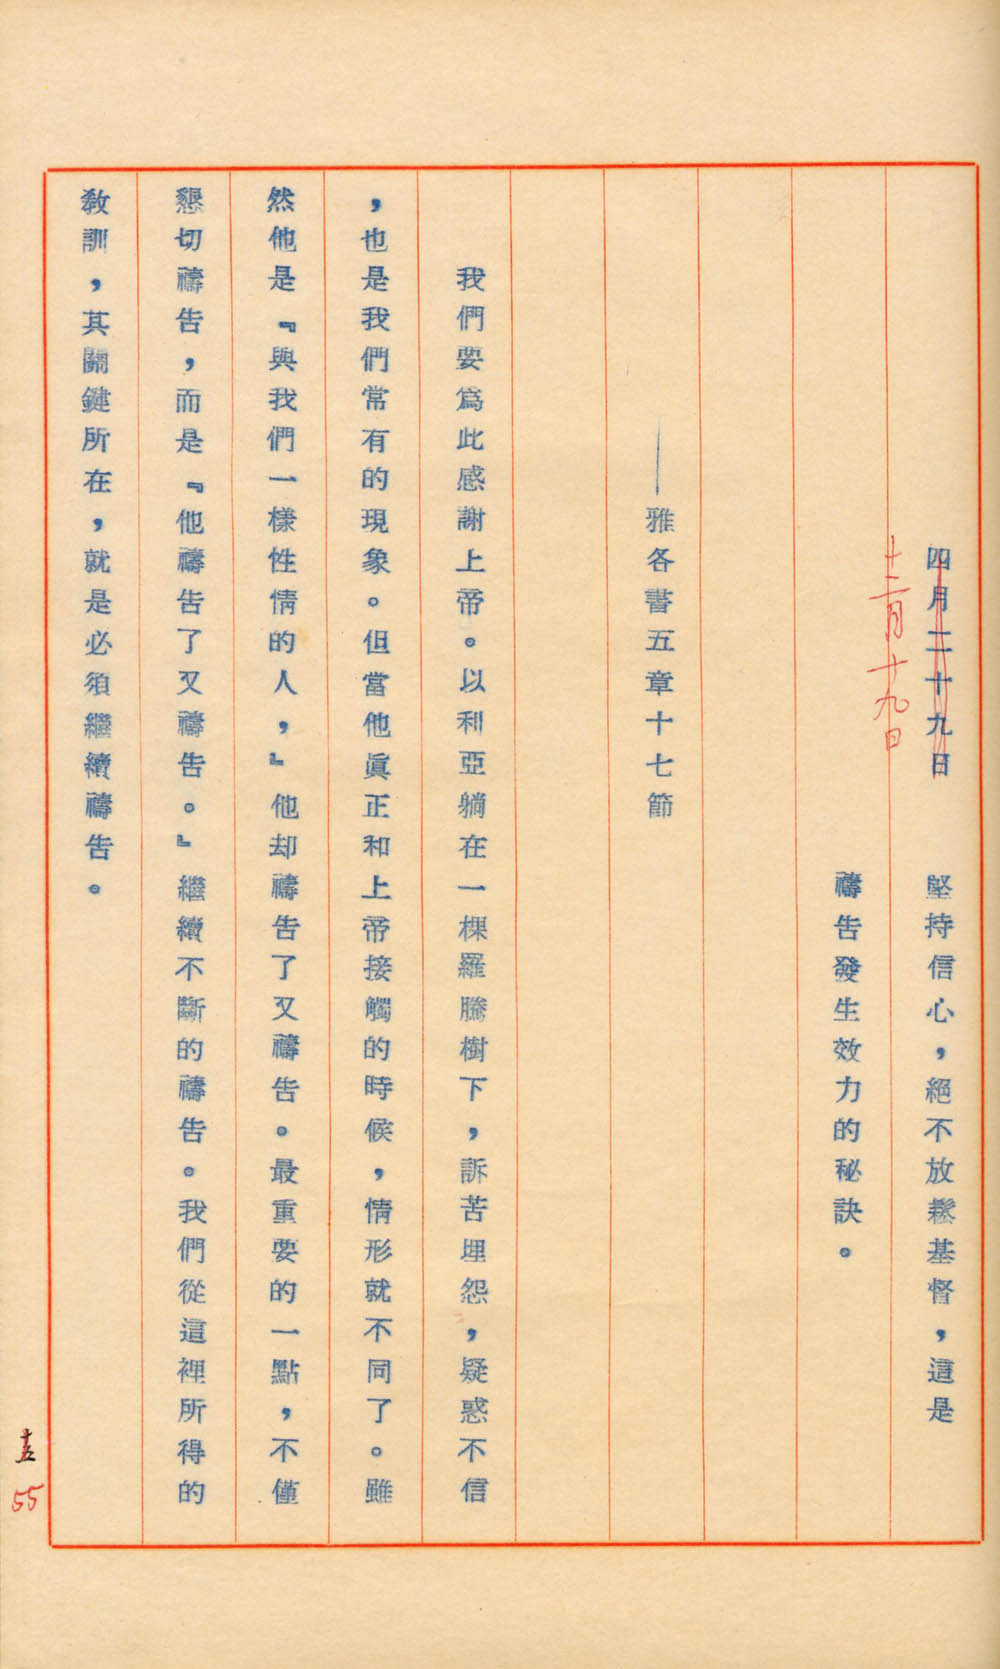 四月二十九日　堅持信心，絕不放鬆基督，這是
十二月十九日
禱告發生效力的秘訣。
——雅各書五章十七節
我們要爲此感謝上帝。以利亞躺在一棵羅騰樹下，訴苦埋怨，疑惑不信
，也是我們常有的現象。但當他眞正和上帝接觸的時候，情形就不同了。雖
然他是『與我們一樣性情的人，』他却禱告了又禱告。最重要的一點，不僅
懇切禱告，而是『他禱告了又禱告。』繼續不斷的禱告。我們從這裡所得的
教訓，其關鍵所在，就是必須繼續禱告。
55